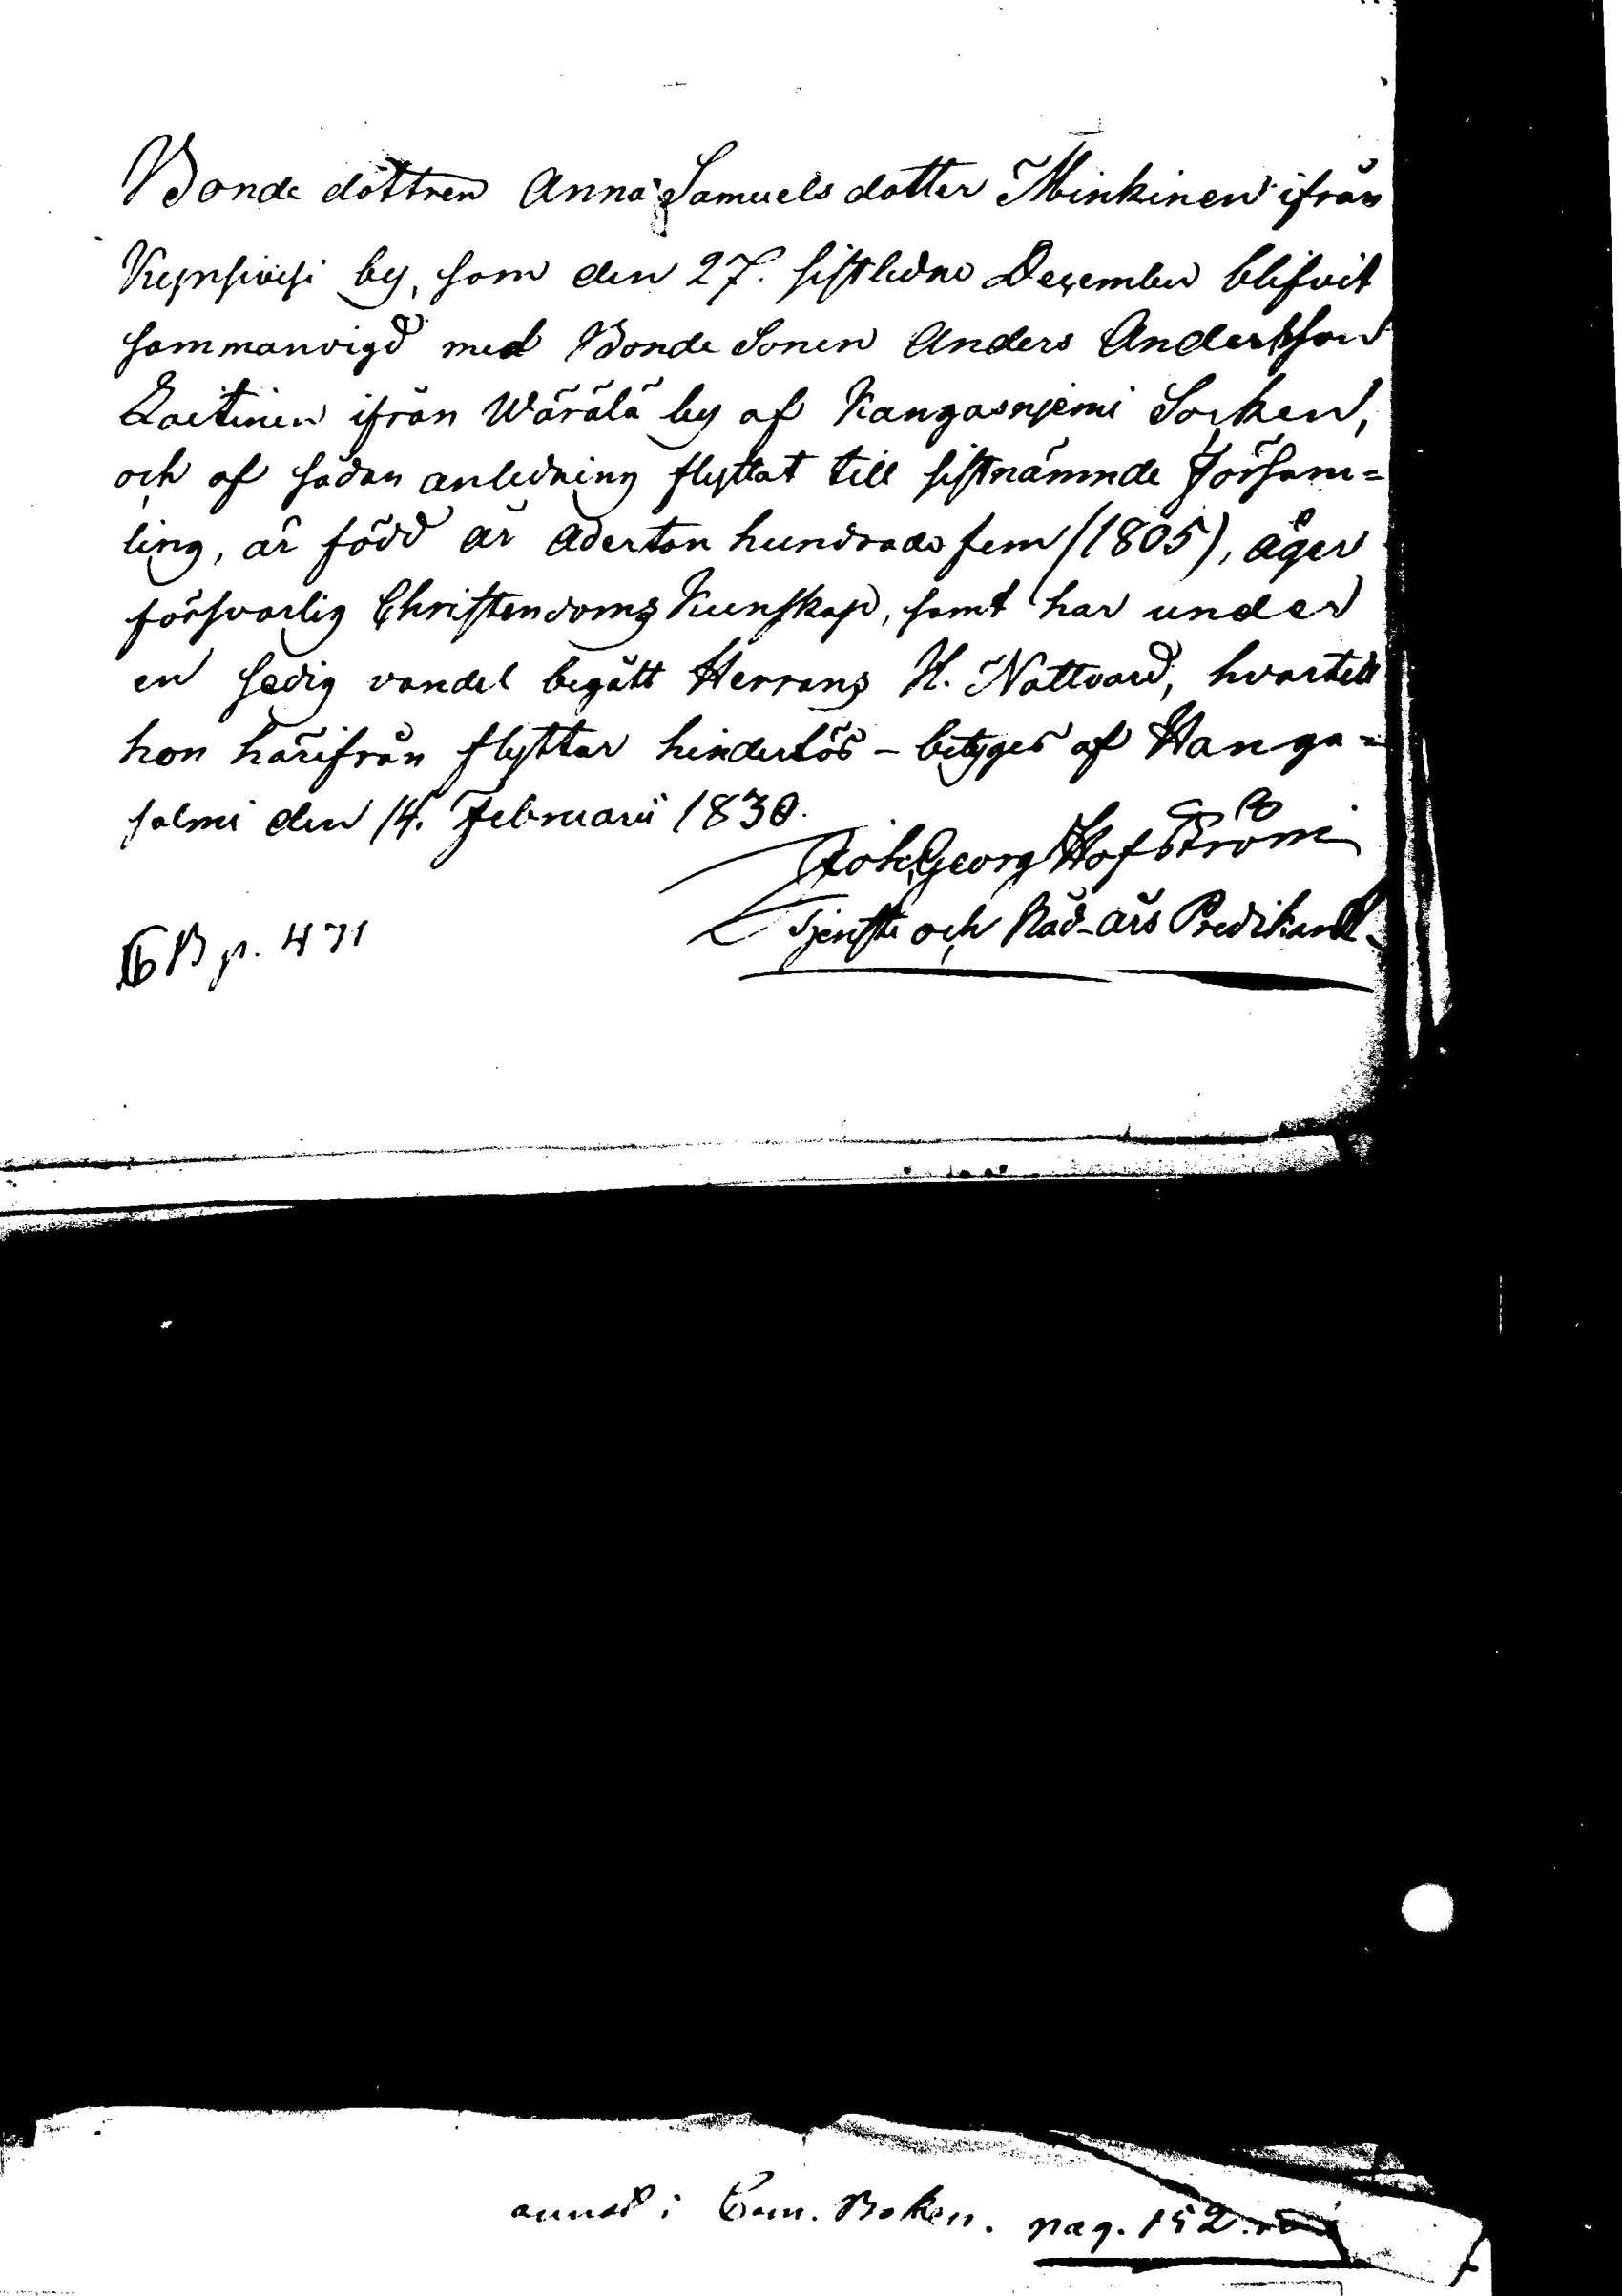 Bonde dottren Anna Samuels dotter Minkinen ifrån
Kynsivesi by, som den 27. sistledne December blifvit
sammanvigd med Bonde Sonen Anders Andersson
Laitinen ifrån Wärälä by af Kangasnjemi Socken,
och af sådan anledning flyttat till sistnämnde Försam=
ling, är född år Adertonhundrade fem (1805), äger
försvarlig Christendoms Kunskap, samt har under
en sedig vandel begått Herrans H. Nattvard, hvartill
hon härifrån flyttar hinderlös – betyges af Hanga=
salmi den 14. Februarii 1830.
Joh. Georg Hofström
Tjenste och Nåd-års Predikant.
CB p. 471
i Com. Boken. pag. 152.